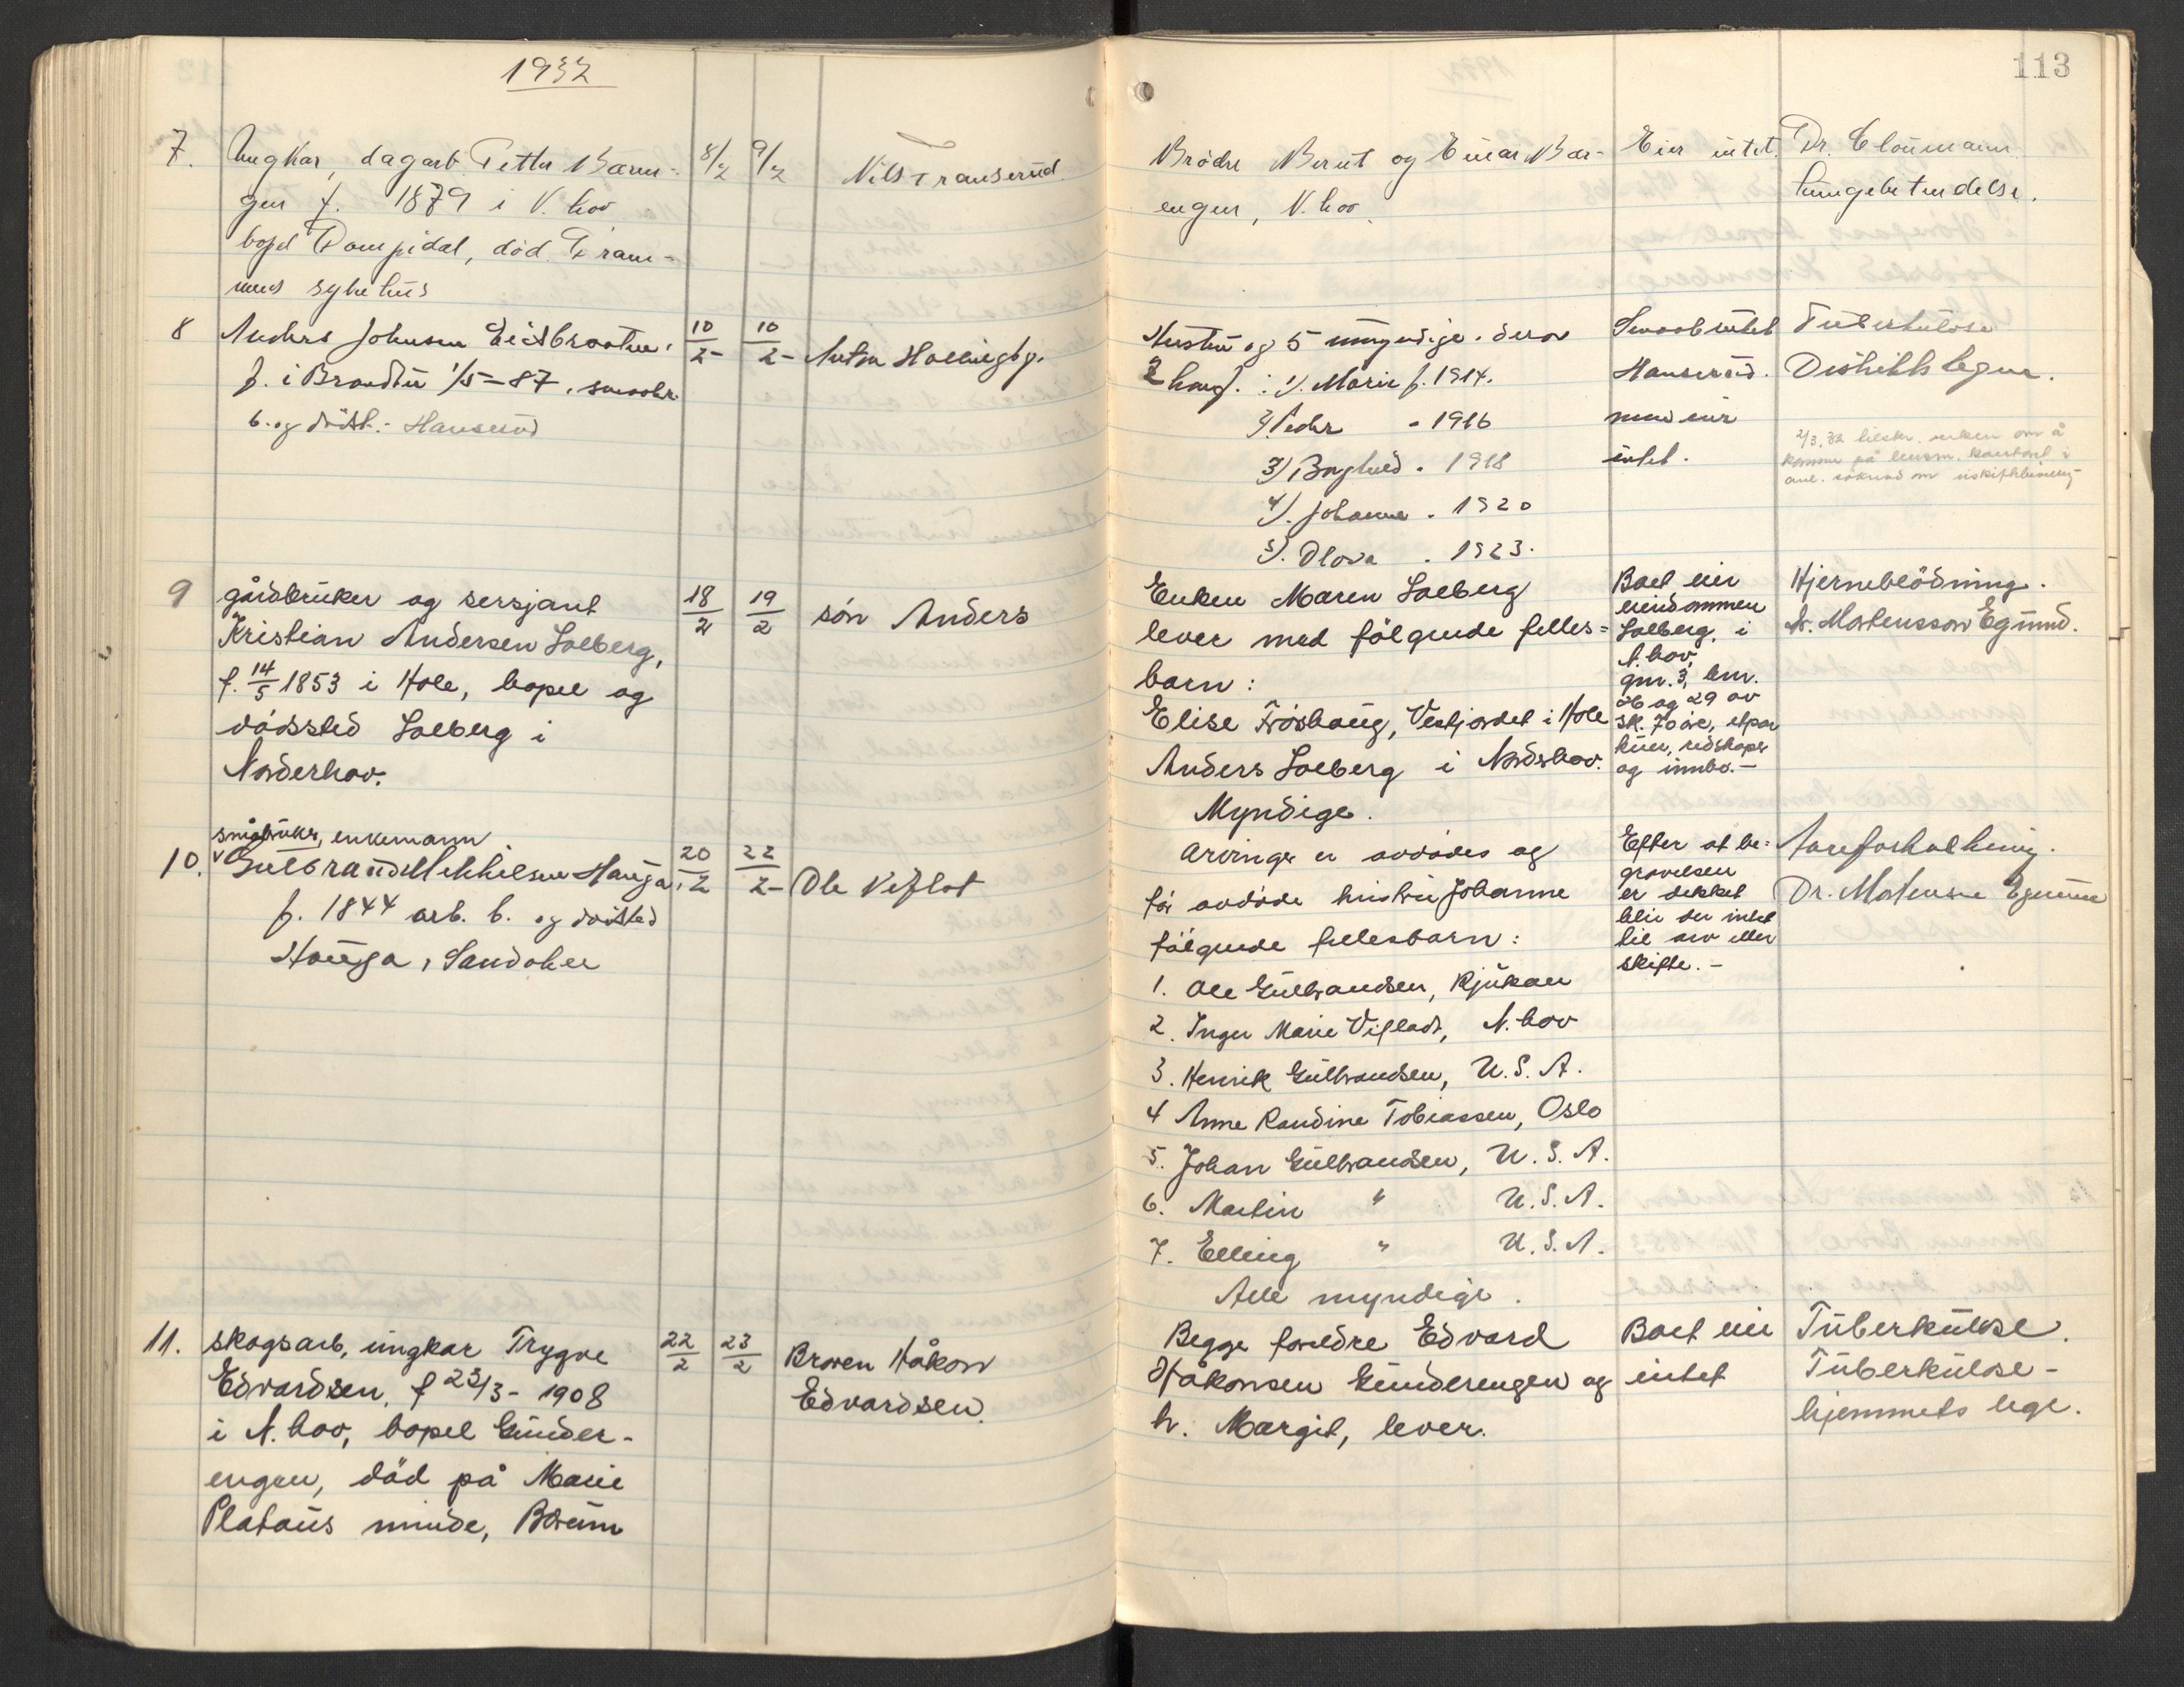 1932
113
7. Ungkar, dagarb. Petter Bæren-
gen f. 1879 i N. hov
bopel Dompidal, död Fram-
nes sykehus
8/2 9/2 Nils Transerud
Brödre Bernt og Einar Bær-
engen, N. hov.
Eier intet.
Dr. Cloumann
lungebetendelse.
8 Anders Johnsen Eidsbraaten,
f. i Brandbu 1/5-87. smaabr.
b. og dödst.: Hanserud
10/2- 10/2- Anton Hallingby.
Hustru og 5 umyndige. derav
2 : 1). Marie f. 1914.
2). Peder - 1916
3) Borghild . 1918
4). Johanne . 1920
5). Olova . 1923.
Smaabruket
Hanserud.
men eier
intet.
Tuberkulose
Distriktslegen.
2/3.32 tilskr. enken om å
komme på lensm. kontoret i
anl. söknad om uskiftebevilling
9 gårdbruker og sersjant
Kristian Andersen Solberg,
f. 14/5 1853 i Hole, bopel og
dödssted Solberg i
Norderhov.
18/2 19/2 sön Anders
Enken Maren Solberg
lever med fölgende felles=
barn:
Elise Fröshaug, Vestjordet i Hole
Anders Solberg i Norderhov.
Myndige.
Boet eier
eiendommen
Solberg, i
N. hov,
gnr. 3, bnr.
26 og 29 av
sk. 70 öre, etpar
kuer, redskaper
og innbo.-
Hjerneblödning.
Dr. Mortensson Egnund.
10. småbruker, enkemann
Gulbrand Mikkelsen Hauga,
f. 1844 arb. b. og dödsted
Hauga, Sandaker
20/2 22/2- Ole Viflat
Arvinger er avdödes og
för avdöde hustru Johanne
fölgende fellesbarn:
1. Ole Gulbrandsen, Rjukan
2. Inger Marie Vifladt, N. hov
3. Henrik Gulbrandsen, U.S.A.
4 Anne Randine Tobiassen, Oslo
5. Johan Gulbrandsen, U.S.A.
6. Martin " U.S.A.
7. Elling " U.S.A.
Alle myndige.
Efter at be=
gravelsen
er dekket
blir der intet
til arv eller
skifte.-
Aareforkalkning.
Dr. Mortensson Egnund
11. skogsarb, ungkar Trygve
Edvardsen, f 23/3- 1908
i N. hov, bopel Gunder-
engen, död på Marie
Plataus minde, Bærum
22/2 23/2 Broren Håkon
Edvardsen.
Begge foreldre Edvard
Håkonsen Gunderengen og
h. Margit, lever.
Boet eier
intet
Tuberkulose.
Tuberkulose-
hjemmets lege.